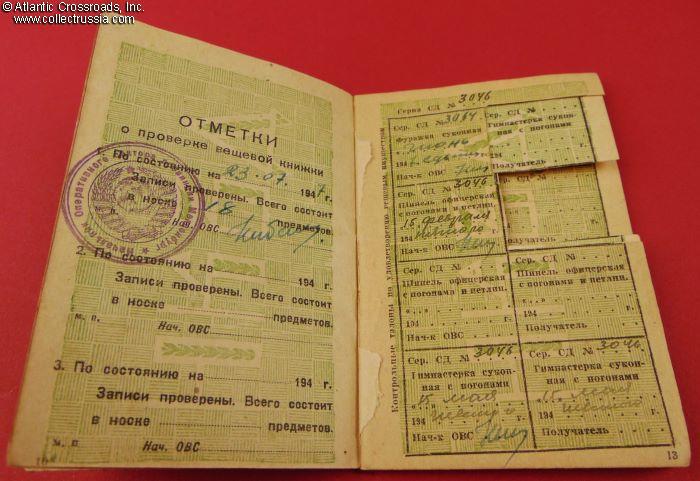 © Atlantic Crossroads, Inc.
www.collectrussia.com
ОТМЕТКИ
о проверке вещевой книжки
1. По состоянию на 23.07. 194 г.
Записи проверены. Всего состоит
в носке 18 предметов.
м. п. Нач. ОВС
2. По состоянию на 194 г.
Записи проверены. Всего состоит
в носке предметов.
м. п. Нач. ОВС
3. По состоянию на 194 г.
Записи проверены. Всего состоит
в носке предметов.
м. п. Нач. ОВС
Контрольные талоны на удовлетворение вещевым имуществом
Серия СД № 3046
Сер. СД №
Фуражка суконная
194 г.
Нач-к ОВС
Гимнастерка сукон-
ная с погонами
194 г.
Получатель
Сер. СД № 3046
Шинель офицерская
с погонами и петлиц.
15 февраля
194 г.
Нач-к ОВС
Получатель
Сер. СД №
Шинель офицерская
с погонами и петлиц.
194 г.
Нач-к ОВС
Сер. СД №
Шинель офицерская
с погонами и петлиц.
194 г.
Получатель
Сер. СД № 3046
Гимнастерка сукон-
ная с погонами
15 мая
194 г.
Нач-к ОВС
Сер. СД № 3046
Гимнастерка сукон-
ная с погонами
15 мая
194 г.
Получатель
13